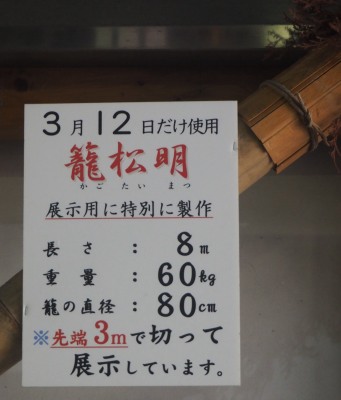 3月12日だけ使用
籠松明
かごたいまつ
展示用に特別に製作
長さ：8m
重量：60kg
籠の直径：80cm
※先端3mで切って
展示しています。